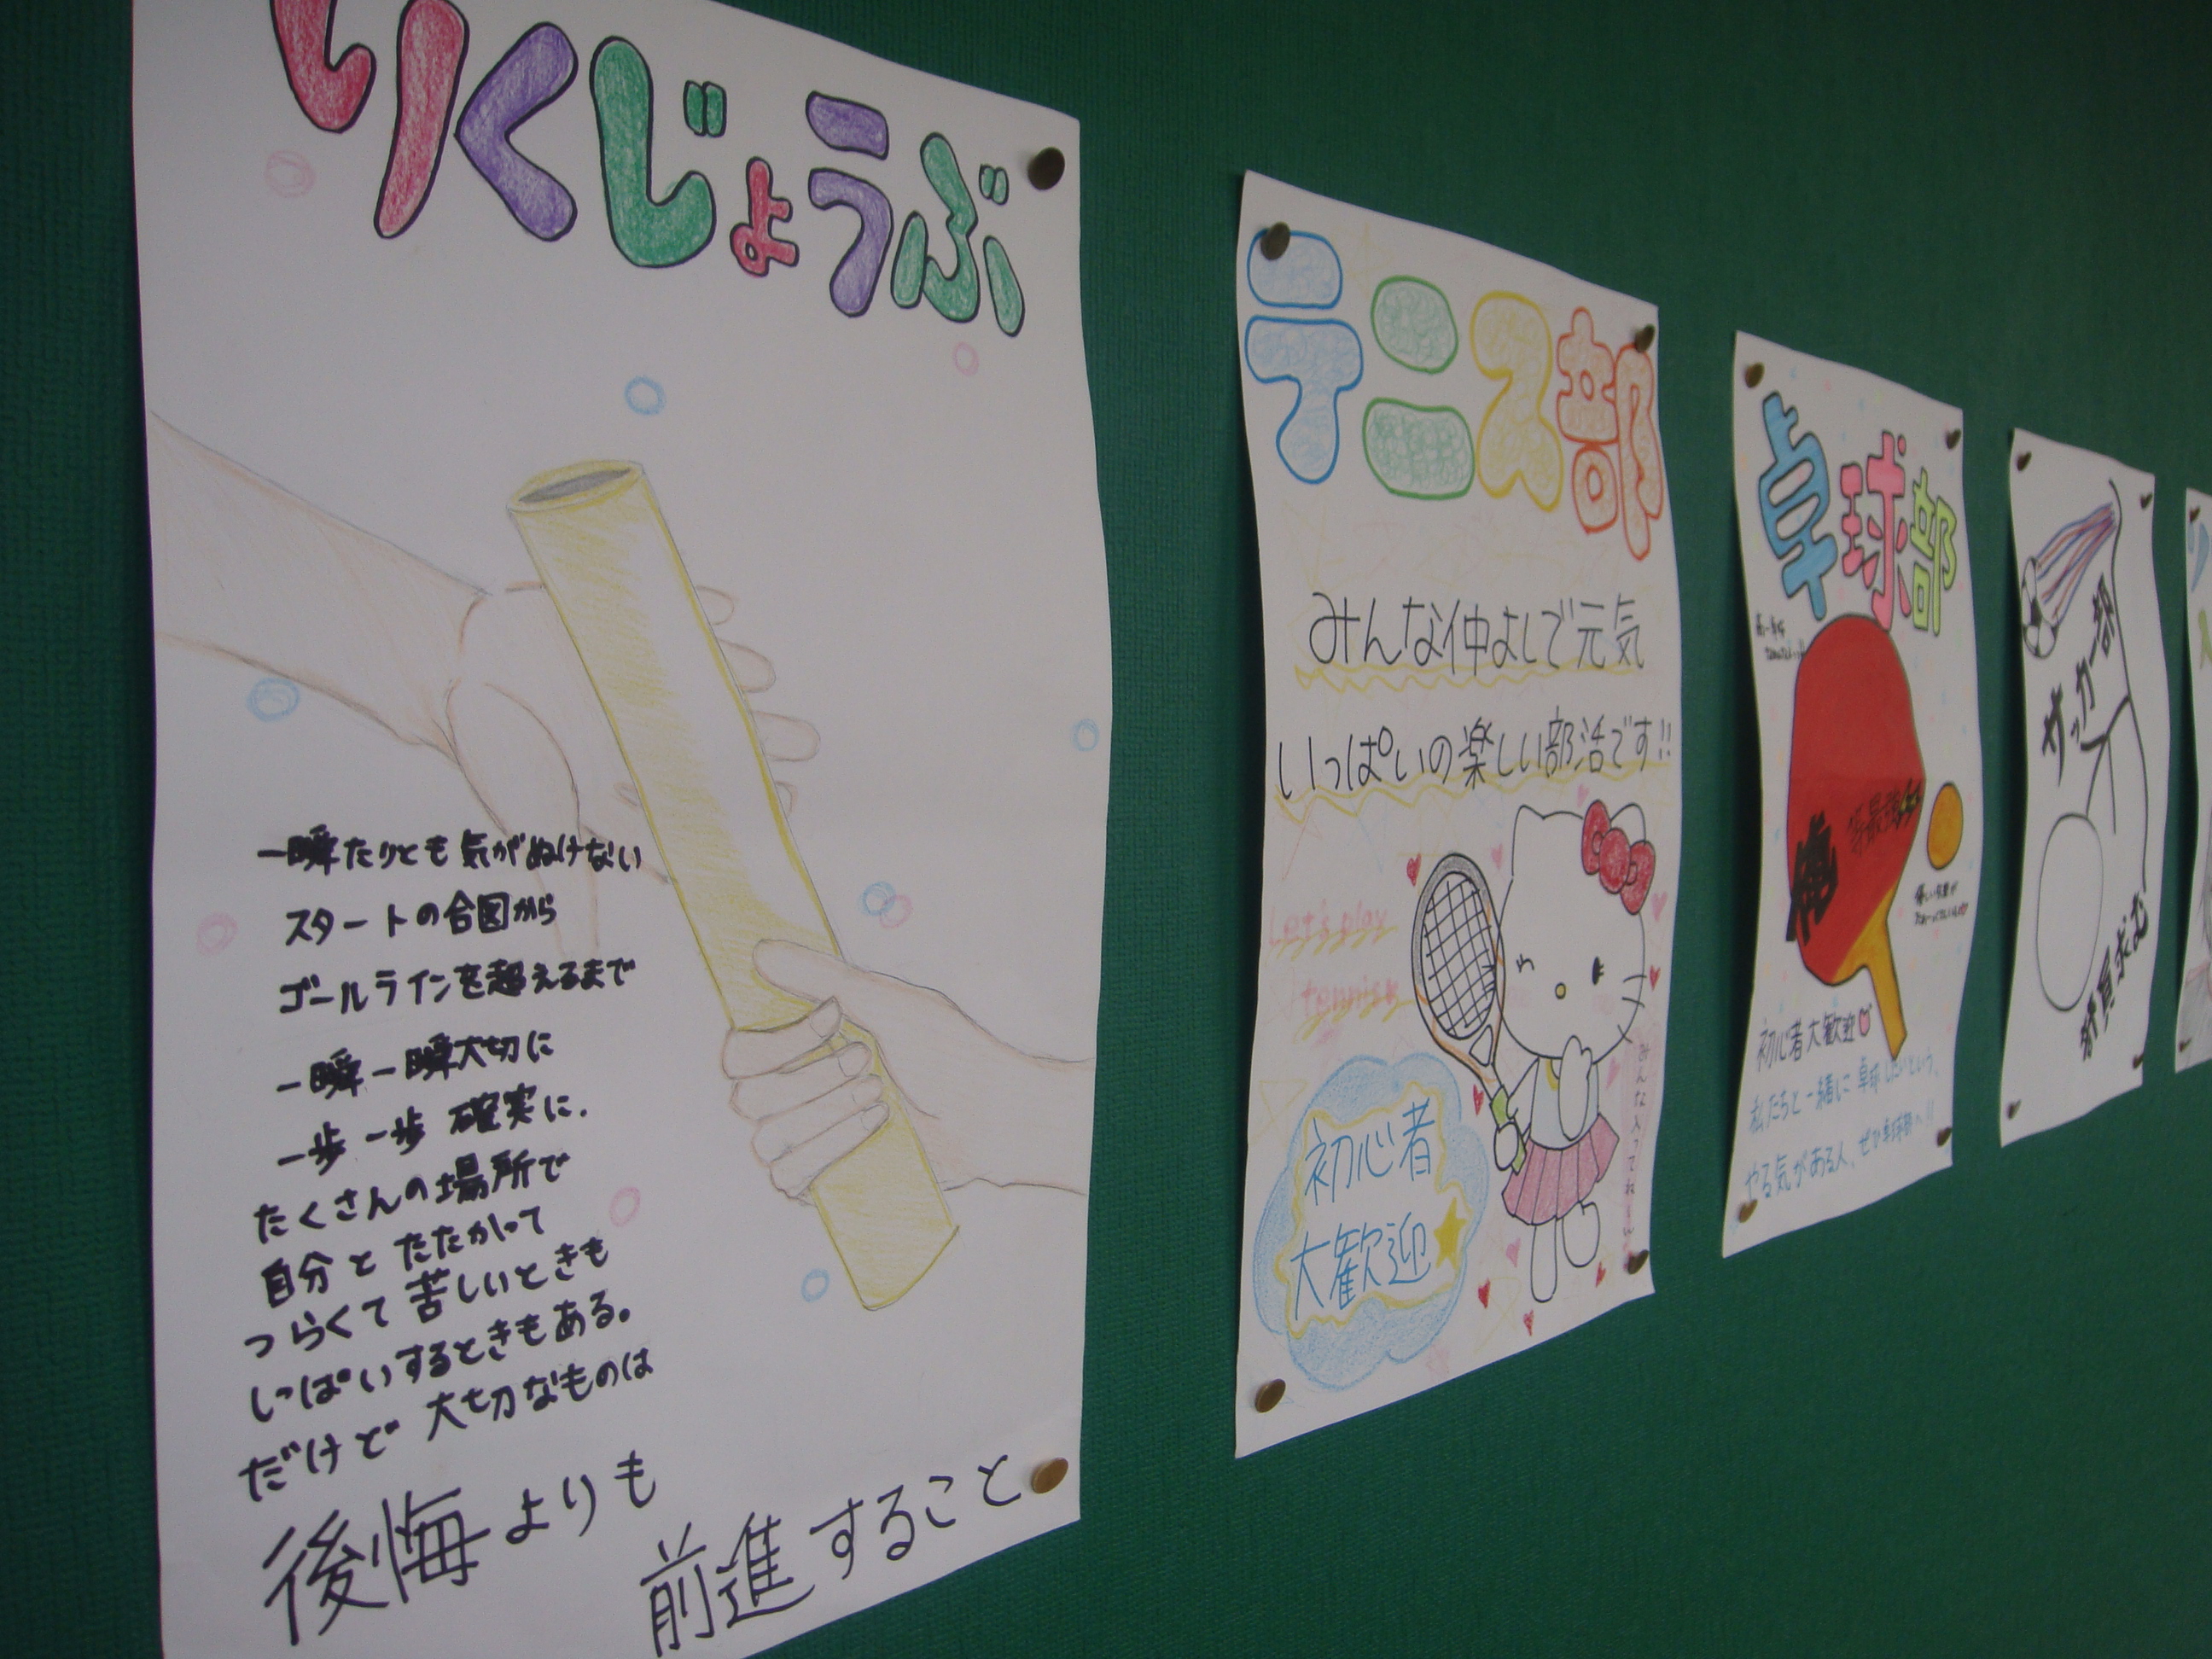 りくじょうぶ
一瞬たりとも気がぬけない
スタートの合図から
ゴールラインを超えるまで
一瞬一瞬大切に
一歩一歩確実に.
たくさんの場所で
自分とたたかって
つらくて苦しいときも
いっぱいするときもある。
だけど大切なものは
後悔よりも
前進すること
テニス部
みんな仲よしで元気
いっぱいの楽しい部活です!!
Let's play
tennis
初心者
大歓迎
みんな入ってね
卓球部
初心者大歓迎
私たちと一緒に卓球したいという、
やる気がある人、ぜひ卓球部へ!!
サッカー部
部員求む